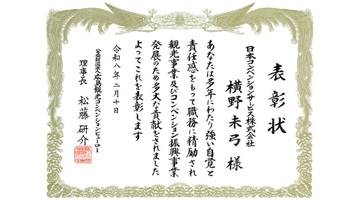 表彰状
日本コンベンションサービス株式会社
横野未弓 様
あなたは多年にわたり強い自覚と
責任感をもって職務に精励され
観光事業及びコンベンション振興事業
発展のため多大な貢献をされました
よってこれを表彰します
令和八年二月十日
公益財団法人広島観光コンベンションビューロー
理事長 松藤研介